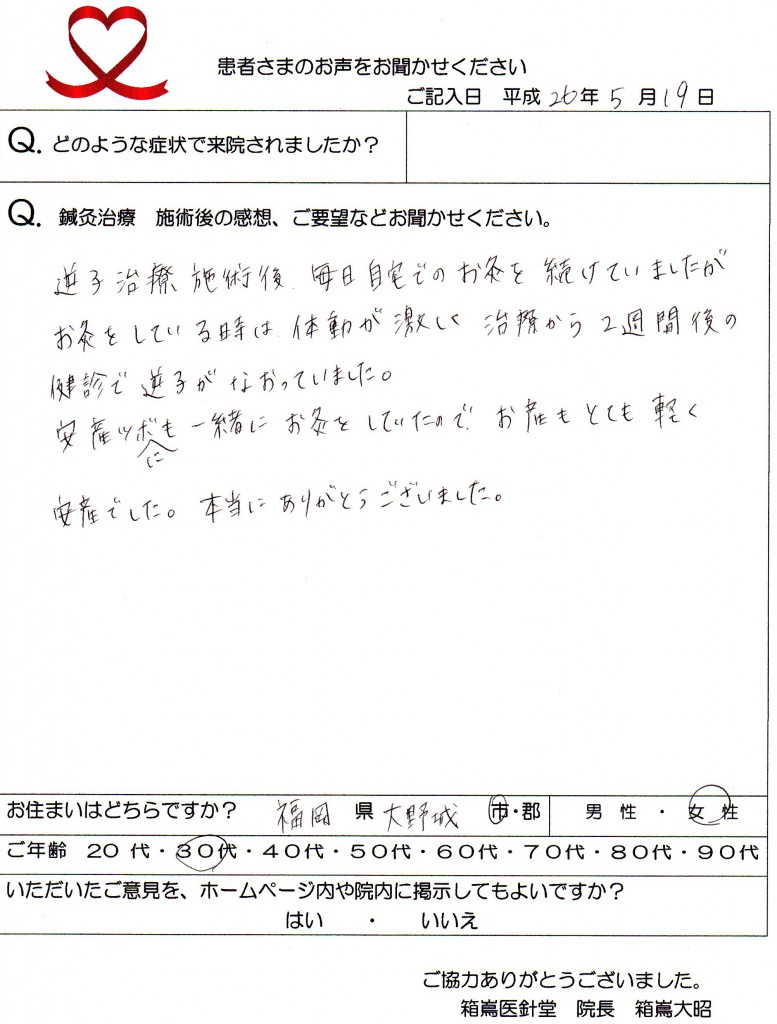 患者さまのお声をお聞かせください
ご記入日 平成 26年 5月19日
Q. どのような症状で来院されましたか？
Q. 鍼灸治療 施術後の感想、ご要望などお聞かせください。
逆子治療、施術後、毎日自宅でのお灸を続けていましたが
お灸をしている時は体動が激しく治療から2週間後の
健診で逆子がなおっていました。
安産ツボにも一緒にお灸をしていたので、お産もとても軽く
安産でした。本当にありがとうございました。
お住まいはどちらですか？ 福岡 県 大野城 市・郡 男性・女性
ご年齢 20代・30代・40代・50代・60代・70代・80代・90代
いただいたご意見を、ホームページ内や院内に掲示してもよいですか？
はい ・ いいえ
ご協力ありがとうございました。
箱嶌医針堂 院長 箱嶌大昭